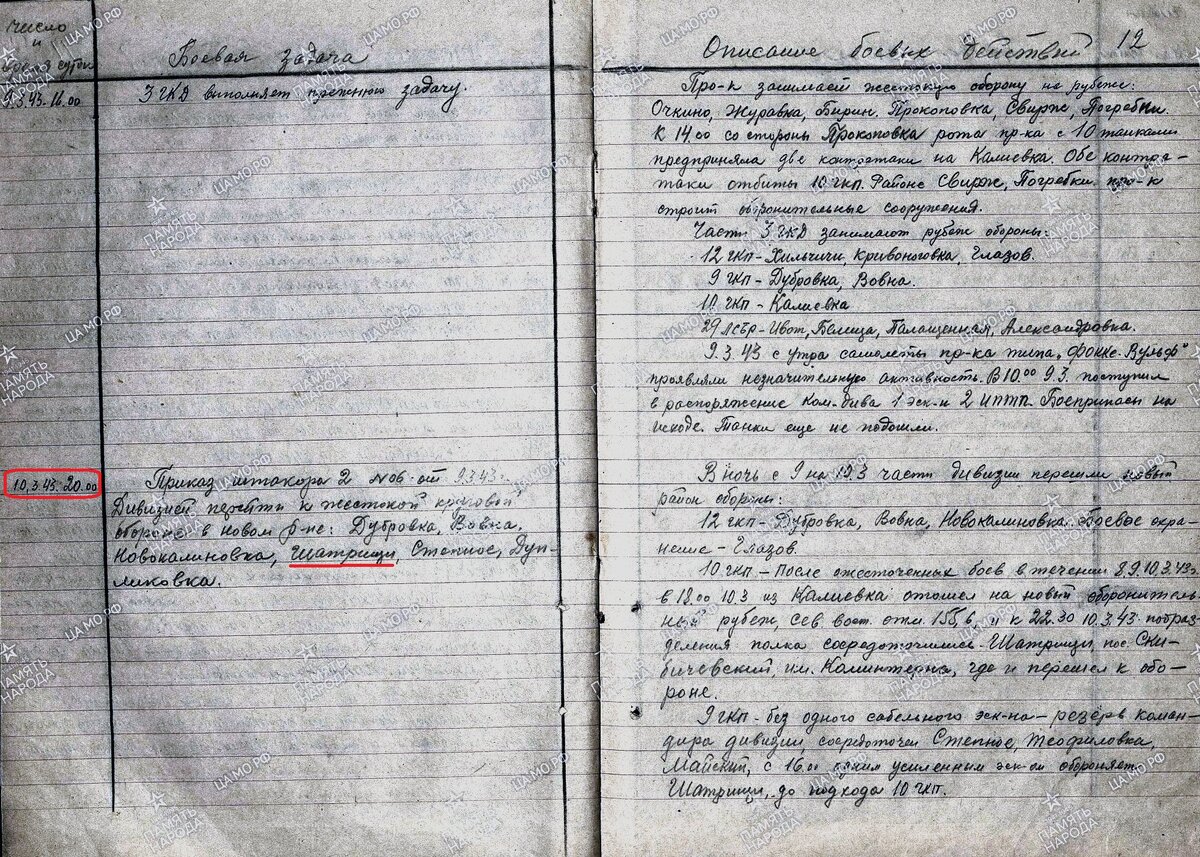 число
и
время суток
Боевая задача
9.3.43. 16.00
3 ГКД выполняет прежнюю задачу.
10.3.43. 20.00
Приказ штакора 2 №06 от 9.3.43г.
Дивизией перейти к жестокой круговой
обороне в новом р-не: Дубровка, Вовна,
Новокалиновка, Шатрищи, Степное, Дун-
ликовка.
Описание боевых действий
12
Пр-к занимает жестокую оборону на рубеже:
Очкино, Журавка, Бирин, Прокоповка, Свирж, Погребки.
К 14.00 со стороны Прокоповка рота пр-ка с 10 танками
предприняла две контратаки на Калиевка. Обе контра-
таки отбиты 10 гкп. Районе Свирж, Погребки пр-к
строит оборонительные сооружения.
Части 3 ГКД занимают рубеж обороны:
12 гкп - Хильчичи, Кривоноговка, Глазов.
9 гкп - Дубровка, Вовна.
10 гкп - Калиевка
29 лсбр - Ивот, Белица, Палащенная, Александровка.
9.3.43 с утра самолеты пр-ка типа „Фокке-Вульф"
проявляли незначительную активность. В 10.00 9.3. поступил
в распоряжение ком-дива 1 эск-н 2 иптп. Боеприпасы на
исходе. Танки еще не подошли.
В ночь с 9 на 10.3 части дивизии перешли новый
район обороны:
12 гкп - Дубровка, Вовна, Новокалиновка. Боевое охра-
нение - Глазов.
10 гкп - После ожесточенных боев в течении 8.9.10.3.43г
в 18.00 10.3 из Калиевка отошел на новый оборонитель-
ный рубеж, сев. вост. отм. 155,6, и к 22.30 10.3.43 подраз-
деления полка сосредоточились Шатрищи, пос. Ски-
бичевский, им. Коминтерна, где и перешел к обо-
роне.
9 гкп - без одного сабельного эск-на - резерв коман-
дира дивизии, сосредоточен Степное, Теофиловка,
Майский, с 16.00 одним усиленным эск-ом обороняет
Шатрищи, до подхода 10 гкп.